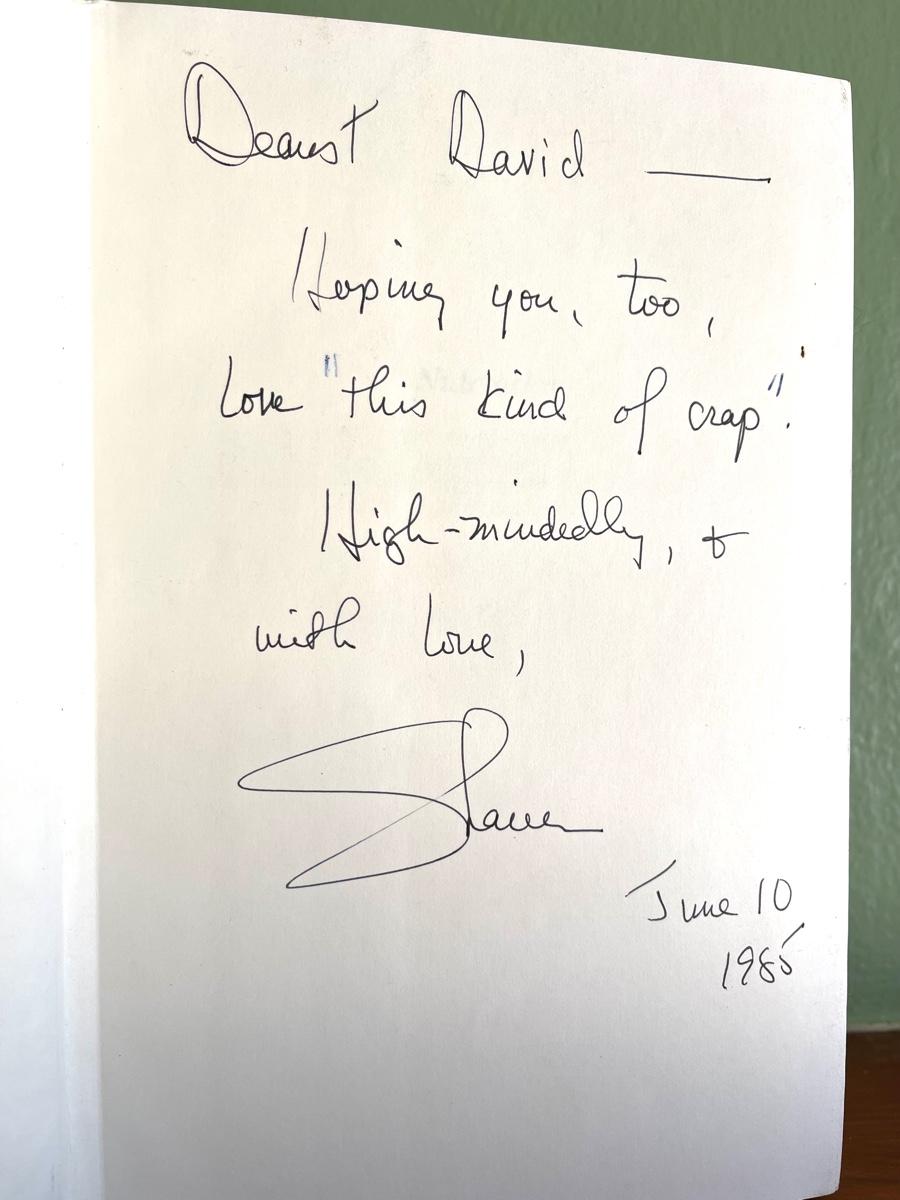 Dearest David —
Hoping you, too,
love "this kind of crap".
High-mindedly, &
with love,
June 10
1985